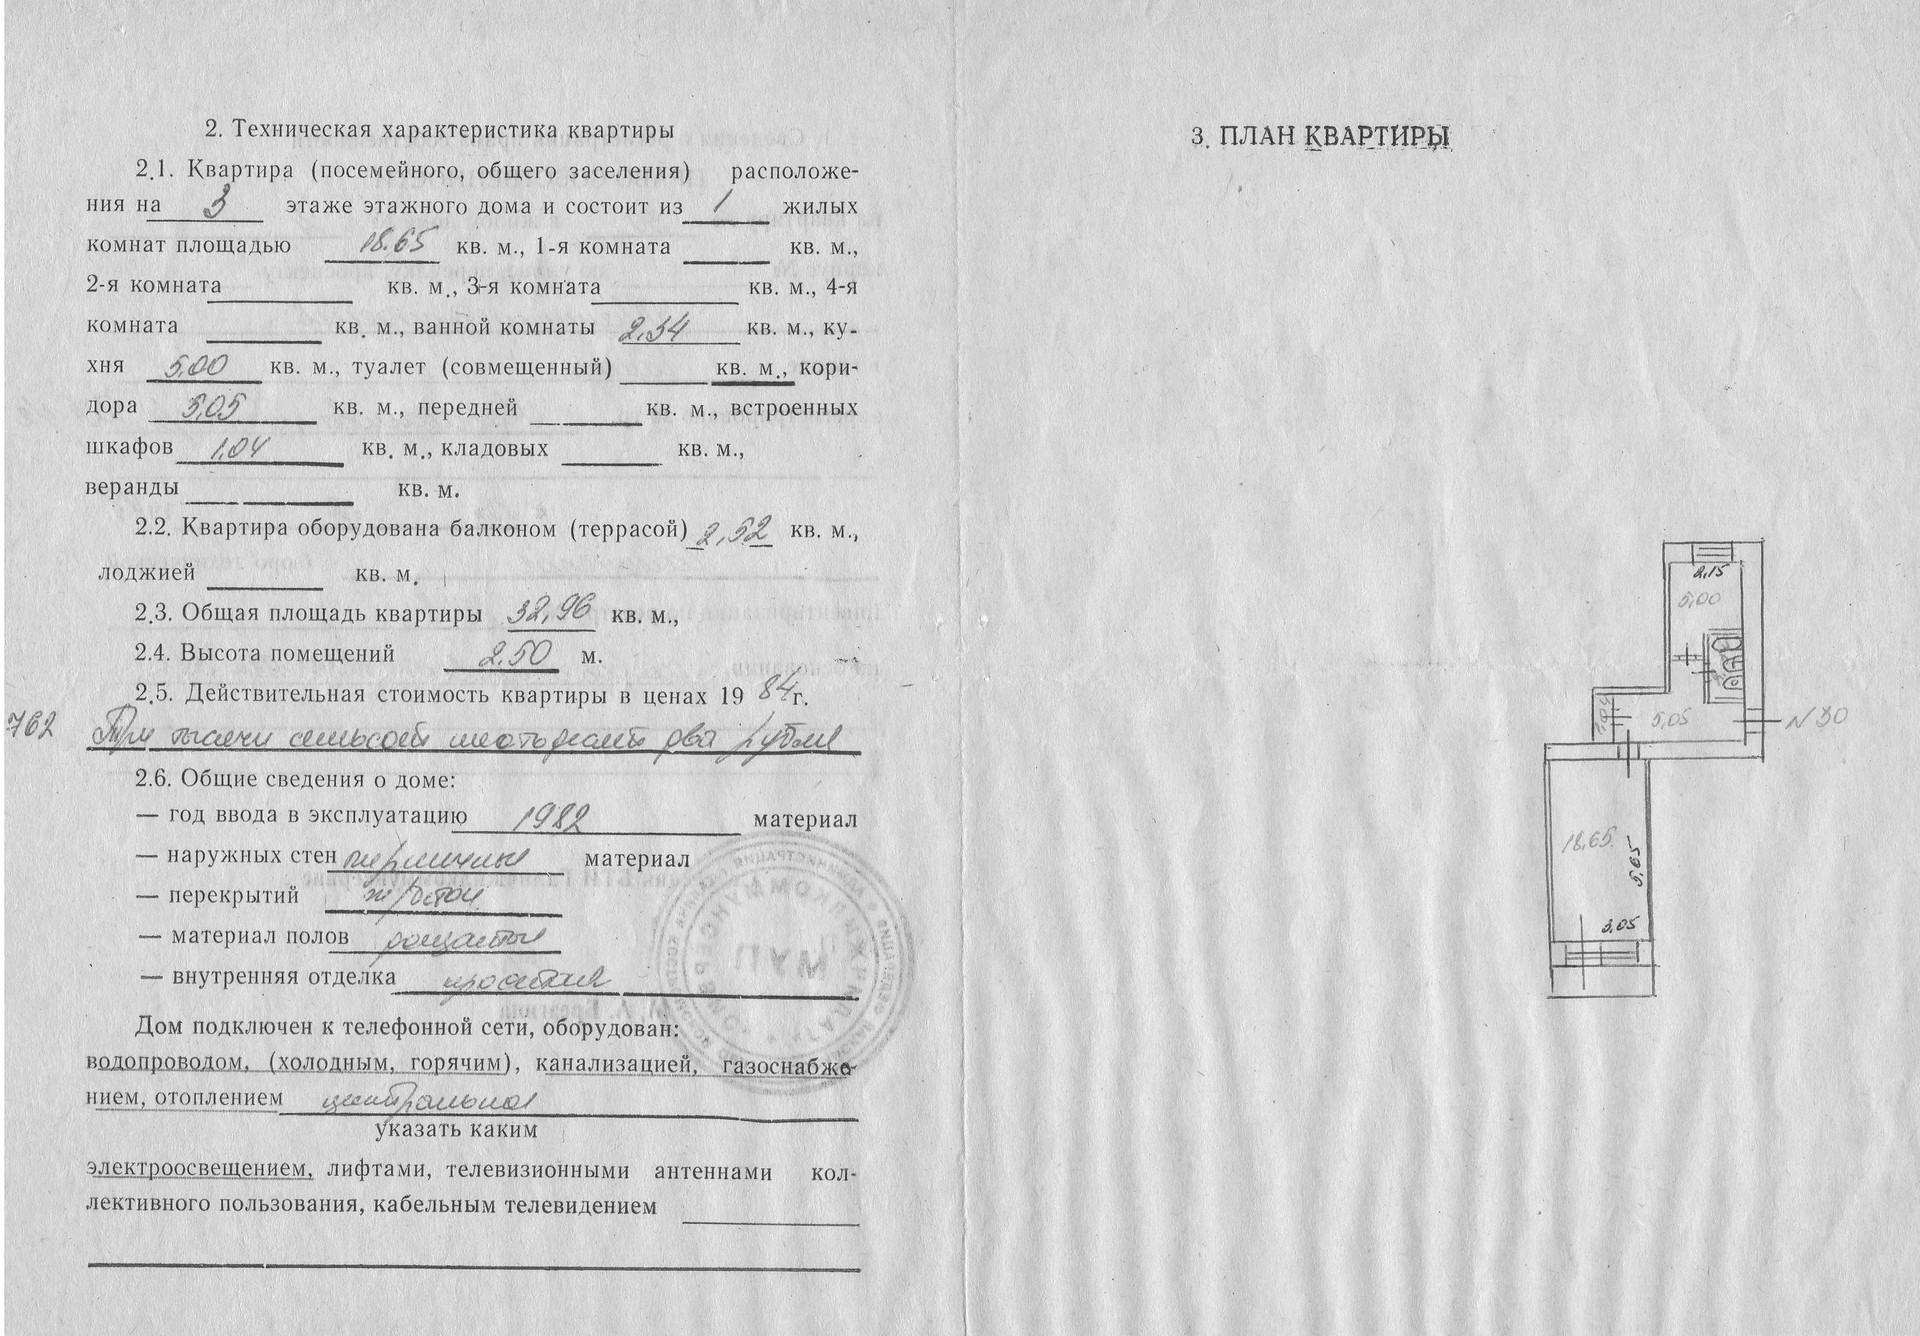 2. Техническая характеристика квартиры
2.1. Квартира (посемейного, общего заселения) расположе-
ния на 3 этаже этажного дома и состоит из 1 жилых
комнат площадью 18.65 кв. м., 1-я комната кв. м.,
2-я комната кв. м., 3-я комната кв. м., 4-я
комната кв. м., ванной комнаты 2,54 кв. м., ку-
хня 5,00 кв. м., туалет (совмещенный) кв. м., кори-
дора 5,05 кв. м., передней кв. м., встроенных
шкафов 1,04 кв. м., кладовых кв. м.,
веранды кв. м.
2.2. Квартира оборудована балконом (террасой) 2,52 кв. м.,
лоджией кв. м.
2.3. Общая площадь квартиры 32,96 кв. м.,
2.4. Высота помещений 2.50 м.
2.5. Действительная стоимость квартиры в ценах 19 84 г.
762 Три тысячи семьсот шестьдесят два рубля
2.6. Общие сведения о доме:
— год ввода в эксплуатацию 1982 материал
— наружных стен кирпичные материал
— перекрытий ж/бетон
— материал полов дощатые
— внутренняя отделка простая
Дом подключен к телефонной сети, оборудован:
водопроводом, (холодным, горячим), канализацией, газоснабже-
нием, отоплением центральное
указать каким
электроосвещением, лифтами, телевизионными антеннами кол-
лективного пользования, кабельным телевидением
3. ПЛАН КВАРТИРЫ
2,15
5,00
5,05
N 30
18,65
5,65
3,05